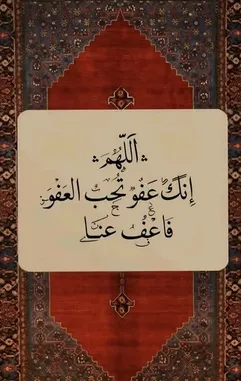 اللَّهُمَّ
إِنَّكَ عَفُوٌّ تُحِبُّ العَفْوَ
فَاعْفُ عَنَّا